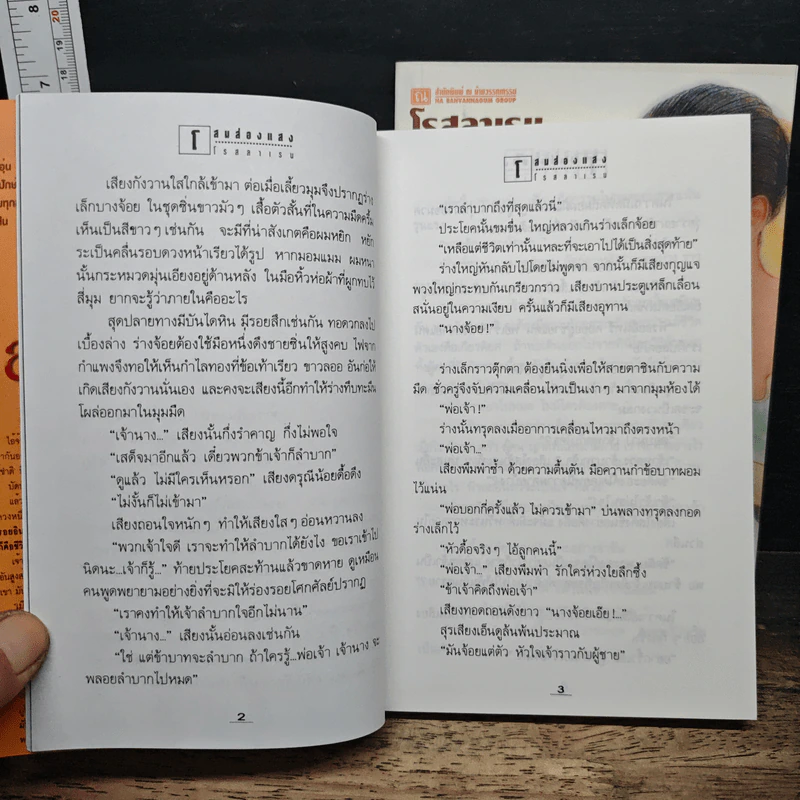 8
7
20
19
18
โสมส่องแสง
โรสลาเรน
เสียงกังวานใสใกล้เข้ามา ต่อเมื่อเลี้ยวมุมจึงปรากฏร่าง
เล็กบางจ้อย ในชุดซิ่นขาวมัวๆ เสื้อตัวสั้นที่ในความมืดครึ้ม
เห็นเป็นสีขาวๆ เช่นกัน จะมีที่น่าสังเกตคือผมหยิก หยัก
ระเป็นคลื่นรอบดวงหน้าเรียวได้รูป หากมอมแมม ผมหนา
นั้นกระหมวดมุ่นเอียงอยู่ด้านหลัง ในมือหิ้วห่อผ้าที่ผูกทบไว้
สี่มุม ยากจะรู้ว่าภายในคืออะไร
สุดปลายทางมีบันไดหิน มีรอยสึกเช่นกัน ทอดวกลงไป
เบื้องล่าง ร่างจ้อยต้องใช้มือหนึ่งดึงชายซิ่นให้สูงคบ ไฟจาก
กำแพงจึงทอให้เห็นกำไลทองที่ข้อเท้าเรียว ขาวลออ อันก่อให้
เกิดเสียงกังวานนั่นเอง และคงจะเสียงนี้อีกทำให้ร่างทึบทะมึน
โผล่ออกมาในมุมมืด
“เจ้านาง...” เสียงนั้นกึ่งรำคาญ กึ่งไม่พอใจ
“เสด็จมาอีกแล้ว เดี๋ยวพวกข้าเจ้าก็ลำบาก”
“ดูแล้ว ไม่มีใครเห็นหรอก” เสียงดรุณีน้อยดื้อดึง
“ไม่งั้นก็ไม่เข้ามา”
เสียงถอนใจหนักๆ ทำให้เสียงใสๆ อ่อนหวานลง
“พวกเจ้าใจดี เราจะทำให้ลำบากได้ยังไง ขอเราเข้าไป
นิดนะ...เจ้าก็รู้...” ท้ายประโยคสะท้านแล้วขาดหาย ดูเหมือน
คนพูดพยายามอย่างยิ่งที่จะมิให้ร่องรอยโศกศัลย์ปรากฏ
“เราคงทำให้เจ้าลำบากใจอีกไม่นาน”
“เจ้านาง...” เสียงนั้นอ่อนลงเช่นกัน
“ใช่ แต่ข้าบาทจะลำบาก ถ้าใครรู้...พ่อเจ้า เจ้านาง จะ
พลอยลำบากไปหมด”
2
โสมส่องแสง
โรสลาเรน
“เราลำบากถึงที่สุดแล้วนี่”
ประโยคนั้นขมขื่น ใหญ่หลวงเกินร่างเล็กจ้อย
“เหลือแต่ชีวิตเท่านั้นแหละที่จะเอาไปได้เป็นสิ่งสุดท้าย”
ร่างใหญ่หันกลับไปโดยไม่พูดจา จากนั้นก็มีเสียงกุญแจ
พวงใหญ่กระทบกันเกรียวกราว เสียงบานประตูเหล็กเลื่อน
สนั่นอยู่ในความเงียบ ครั้นแล้วก็มีเสียงอุทาน
“นางจ้อย!”
ร่างเล็กราวตุ๊กตา ต้องยืนนิ่งเพื่อให้สายตาชินกับความ
มืด ชั่วครู่จึงจับความเคลื่อนไหวเป็นเงาๆ มาจากมุมห้องได้
“พ่อเจ้า!”
ร่างนั้นทรุดลงเมื่ออาการเคลื่อนไหวมาถึงตรงหน้า
“พ่อเจ้า...”
เสียงพึมพำซ้ำ ด้วยความตื้นตัน มือควานกำข้อบาทผอม
ไว้แน่น
“พ่อบอกกี่ครั้งแล้ว ไม่ควรเข้ามา” บ่นพลางทรุดลงกอด
ร่างเล็กไว้
“หัวดื้อจริงๆ ไอ้ลูกคนนี้”
“พ่อเจ้า...” เสียงพึมพำ รักใคร่ห่วงใยลึกซึ้ง
“ข้าเจ้าคิดถึงพ่อเจ้า”
เสียงทอดถอนดังยาว “นางจ้อยเอ๊ย!...”
สุรเสียงเอ็นดูล้นพ้นประมาณ
“มันจ้อยแต่ตัว หัวใจเจ้าราวกับผู้ชาย”
3
สำนักพิมพ์ ณ บ้านวรรณกรรม
NA BANVANNAGUM GROUP
โรสลาเรน